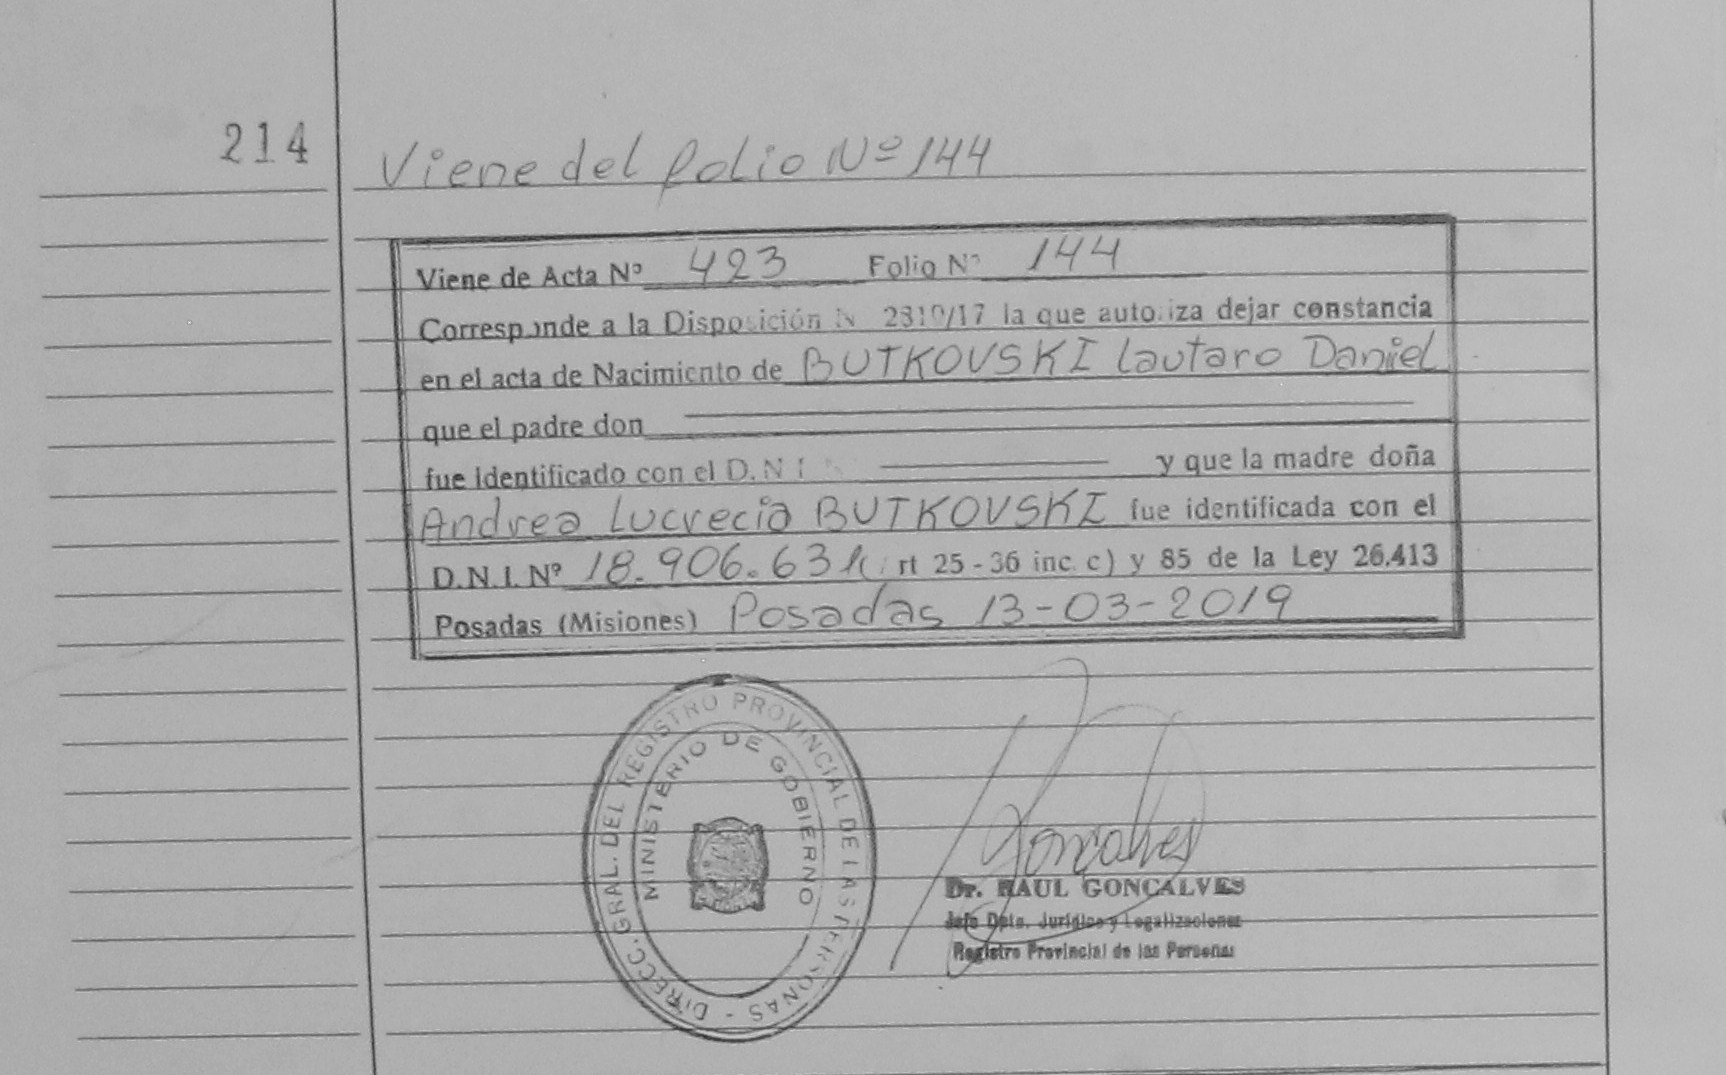 214
Viene del folio Nº 144
Viene de Acta Nº 423 Folio Nº 144
Corresponde a la Disposición N 2310/17 la que autoriza dejar constancia
en el acta de Nacimiento de BUTKOVSKI Lautaro Daniel
que el padre don
fue identificado con el D.N.I. y que la madre doña
Andrea Lucrecia BUTKOVSKI fue identificada con el
D.N.I. Nº 18.906.631 (rt 25 - 36 inc. c) y 85 de la Ley 26.413
Posadas (Misiones) Posadas 13-03-2019
DIRECC. GRAL. DEL REGISTRO PROVINCIAL DE LAS PERSONAS -
MINISTERIO DE GOBIERNO
Goncalves
Dr. RAUL GONCALVES
Jefe Dpto. Jurídico y Legalizaciones
Registro Provincial de las Personas